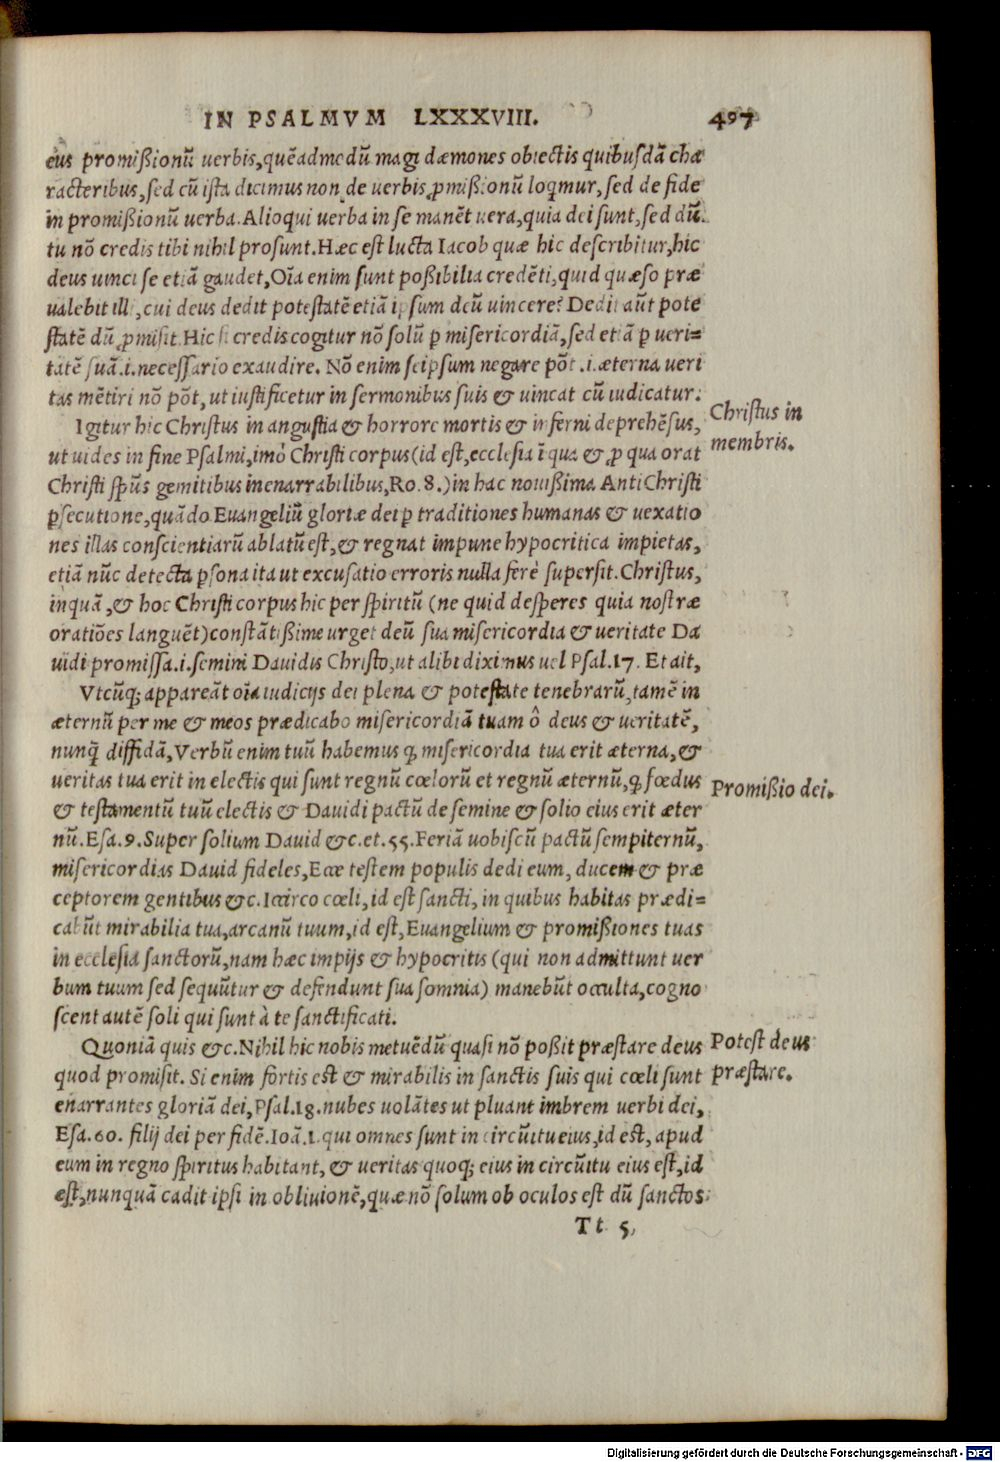 IN PSALMVM LXXXVIII. 497
eius promißionũ uerbis, quẽadmodũ magi dæmones obiectis quibusdã cha
racteribus, sed cũ ista dicimus non de uerbis ꝓmißionũ loqmur, sed de fide
in promißionũ uerba. Alioqui uerba in se manẽt uera, quia dei sunt, sed dũ
tu nõ credis tibi nihil prosunt. Hæc est lucta Iacob quæ hic describitur, hic
deus uinci se etiã gaudet, Oĩa enim sunt poßibilia credẽti, quid quæso præ
ualebit illi, cui deus dedit potestatẽ etiã ipsum deũ uincere? Dedit aũt pote
statẽ dũ ꝓmisit. Hic si credis cogitur nõ solũ ꝑ misericordiã, sed etiã ꝑ ueri=
tatẽ suã .i. necessario exaudire. Nõ enim seipsum negare põt .i. æterna ueri
tas mẽtiri nõ põt, ut iustificetur in sermonibus suis & uincat cũ iudicatur.
Igitur hic Christus in angustia & horrore mortis & inferni deprehẽsus,
Christus in
membris.
ut uides in fine Psalmi, imò Christi corpus (id est, ecclesia ĩ qua & ꝓ qua orat
Christi spũs gemitibus inenarrabilibus, Ro. 8.) in hac nouißima AntiChristi
ꝑsecutione, quãdo Euangeliũ gloriæ dei ꝑ traditiones humanas & uexatio
nes illas conscientiarũ ablatũ est, & regnat impune hypocritica impietas,
etiã nũc detecta ꝑsona ita ut excusatio erroris nulla ferè supersit. Christus,
inquã, & hoc Christi corpus hic per spiritũ (ne quid desperes quia nostræ
oratiões languẽt) constãtißime urget deũ sua misericordia & ueritate Da
uidi promissa .i. semini Dauidis Christo, ut alibi diximus uel Psal. 17. Et ait,
Vtcũq; appareãt oĩa iudicijs dei plena & potestate tenebrarũ, tamẽ in
æternũ per me & meos prædicabo misericordiã tuam ô deus & ueritatẽ,
nunq̃ diffidã, Verbũ enim tuũ habemus ꝙ misericordia tua erit æterna, &
ueritas tua erit in electis qui sunt regnũ cœlorũ et regnũ æternũ, ꝙ fœdus
Promißio dei.
& testamentũ tuũ electis & Dauidi pactũ de semine & solio eius erit æter
nũ. Esa. 9. Super solium Dauid &c. et. 55. Feriã uobiscũ pactũ sempiternũ,
misericordias Dauid fideles, Ecce testem populis dedi eum, ducem & præ
ceptorem gentibus &c. Iccirco cœli, id est sancti, in quibus habitas prædi=
cabũt mirabilia tua, arcanũ tuum, id est, Euangelium & promißiones tuas
in ecclesia sanctorũ, nam hæc impijs & hypocritis (qui non admittunt uer
bum tuum sed sequũtur & defendunt sua somnia) manebũt occulta, cogno
scent autẽ soli qui sunt à te sanctificati.
Quoniã quis &c. Nihil hic nobis metuẽdũ quasi nõ poßit præstare deus
Potest deus
præstare.
quod promisit. Si enim fortis est & mirabilis in sanctis suis qui cœli sunt
enarrantes gloriã dei, Psal. 18. nubes uolãtes ut pluant imbrem uerbi dei,
Esa. 60. filij dei per fidẽ. Ioã. 1. qui omnes sunt in circũitu eius, id est, apud
eum in regno spiritus habitant, & ueritas quoq; eius in circũitu eius est, id
est, nunquã cadit ipsi in obliuionẽ, quæ nõ solum ob oculos est dũ sanctos
Tt 5
Digitalisierung gefördert durch die Deutsche Forschungsgemeinschaft - DFG